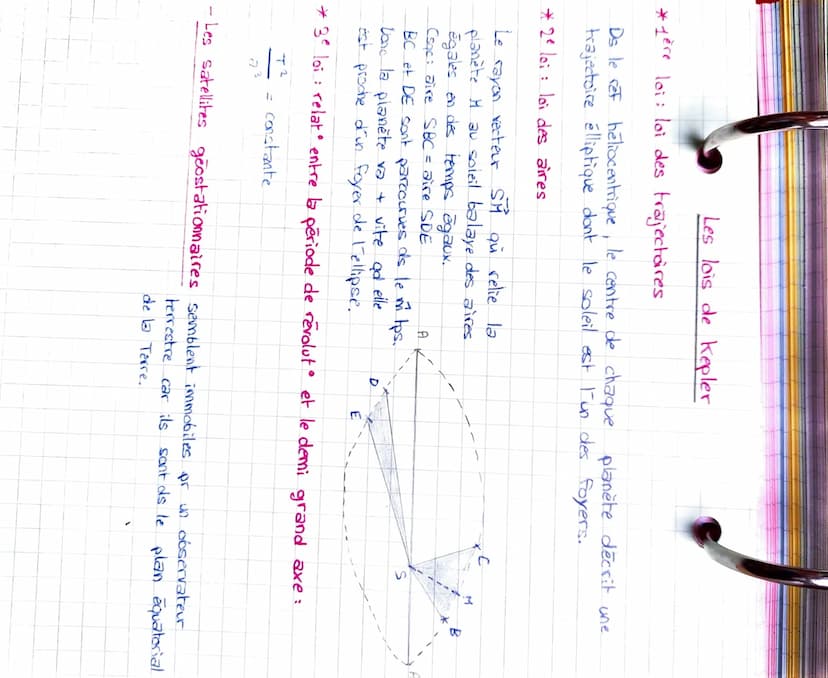 Les lois de Kepler
* 1ère loi : loi des trajectoires
Ds le réf héliocentrique, le centre de chaque planète décrit une
trajectoire élliptique dont le soleil est l'un des foyers.
* 2e loi : loi des aires
Le rayon vecteur SM qui relie la
planète M au soleil balaye des aires
égales en des temps égaux.
Csqc : aire SBC = aire SDE
BC et DE sont parcourues ds le m̂ tps.
Donc la planète va + vite qd elle
est proche d'un foyer de l'ellipse.
A
D
E
S
C
M
B
* 3e loi : relat° entre la période de révolut° et le demi grand axe :
T² / r³ = constante
- Les satellites géostationnaires semblent immobiles pr un observateur
terrestre car ils sont ds le plan équatorial
de la Terre.